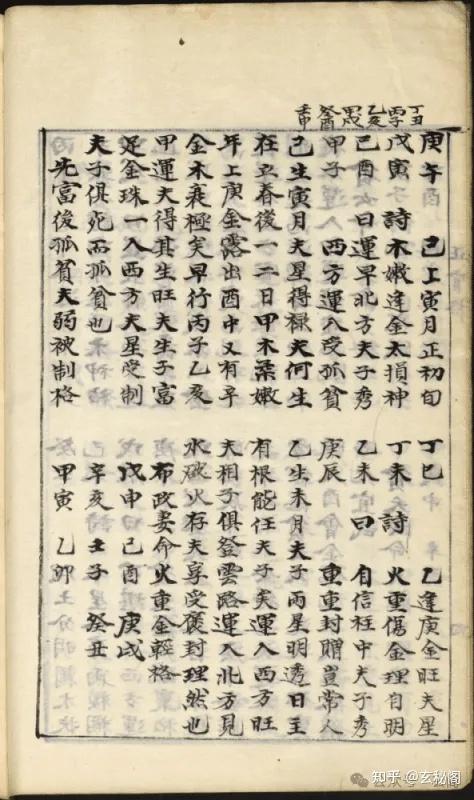 丁丑 丙子 乙亥 甲戌 癸酉 壬申
庚午 己上寅月正初旬
戊寅 詩 木嫩逢金太損神
己酉 曰 運早北方夫子秀
甲子 西方運入受孤貧
己生寅月夫星得祿夫何生
在立春後一二日甲木柔嫩
年上庚金露出酉中又有辛
金木衰極矣早行丙子乙亥
甲運夫得其生旺夫生子富
足金珠一入西方夫星受制
夫子俱死而孤貧也
先富後孤貧夫弱被制格
丁巳 乙逢庚金旺夫星
丁未 詩 火重傷金理自明
乙未 曰 自信柱中夫子秀
庚辰 重重封贈豈常人
乙生未月夫子兩星明透日主
有根能任夫子矣運入西方旺
夫相子俱登雲路運入北方見
水破火存夫享受褒封理然也
布政妻命火重金輕格
戊申 己酉 庚戌
辛亥 壬子 癸丑
甲寅 乙卯
知乎 @玄秘阁